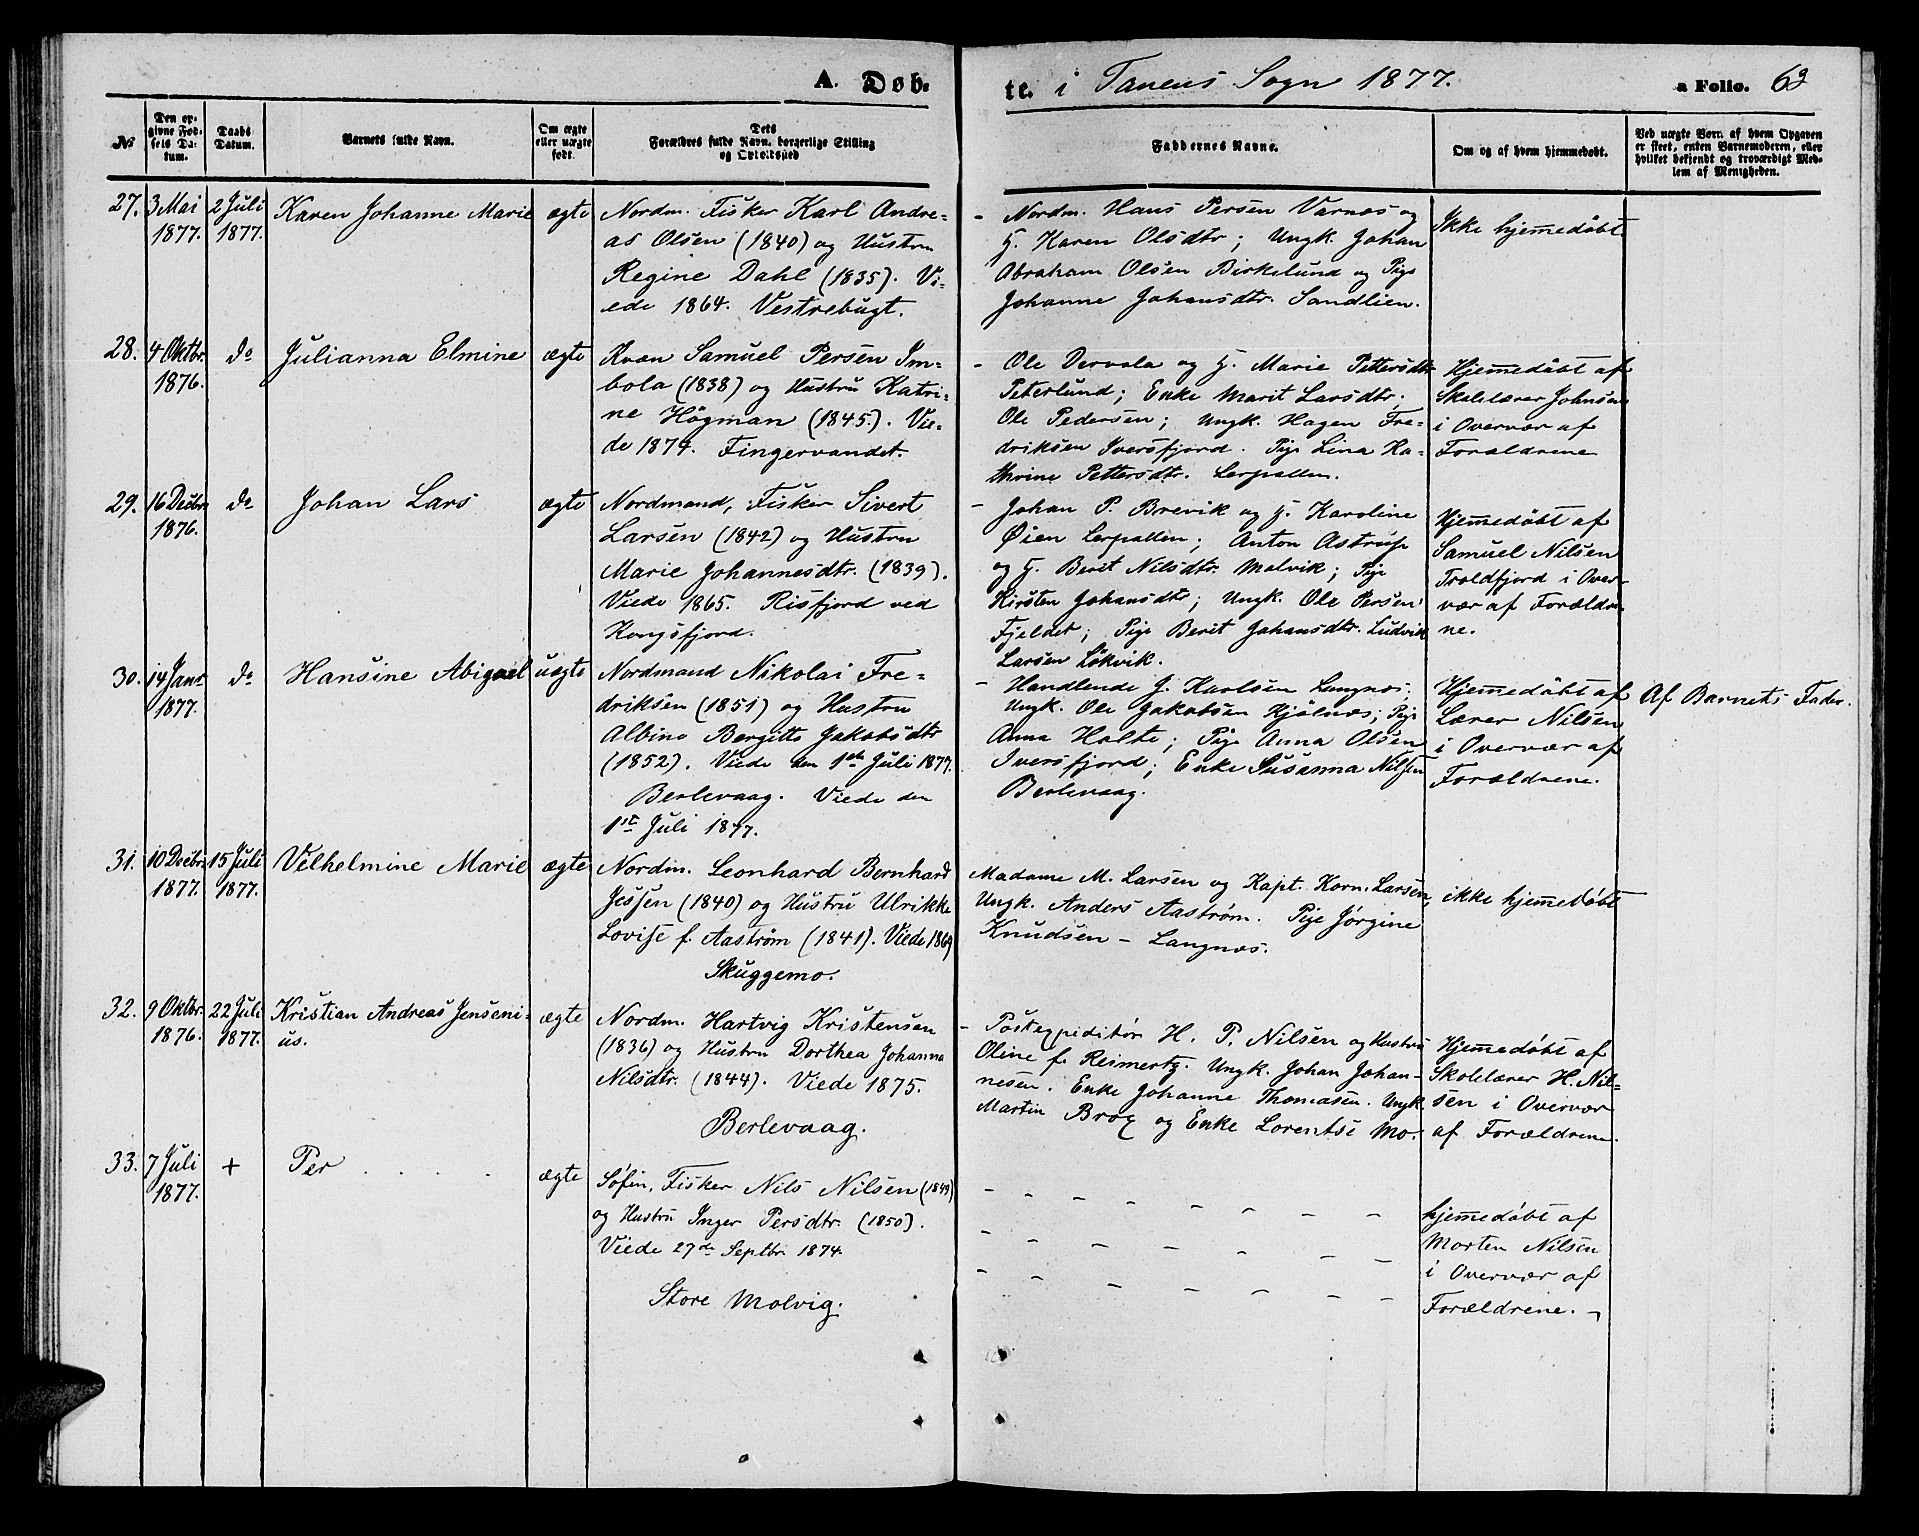 A. Døb-
te. i Tanens Sogn 1877.
a Folio. 62
№
Den op-
givne Fød-
sels Da-
tum.
Daabs
Datum.
Barnets fulde Navn.
Om ægte
eller uægte
født.
Dets
Forældres fulde Navn, borgerlige Stilling
og Opholdssted
Faddernes Navne.
Om og af hvem hjemmedøbt.
Ved uægte Børn, af hvem Opgaven
er skeet, enten Barnemoderen, eller
hvilket bekjendt og troværdigt Med-
lem af Menigheden.
27.
3 Mai
1877.
2 Juli
1877.
Karen Johanne Marie
ægte
Nordm. Fisker Karl Andre-
as Olsen (1840) og Hustru
Regine Dahl (1835). Vi-
ede 1864. Vestrebugt.
- Nordm. Hans Persen Varnæs og
H. Karen Olsdtr; Ungk. Johan
Abraham Olsen Birkelund og Pige
Johanne Johansdtr. Sandlien.
Ikke hjem̅edøbt
28.
4 Oktbr.
1876.
do
Julianna Elmine
ægte
Kvæn Samuel Persen Im-
bola (1838) og Hustru Katri-
ne Högman (1845). Vie-
de 1874. Fingervandet.
- Ole Dervola og H. Marie Pettersdtr
Peterlund; Enke Marit Larsdtr.
Ole Pedersen; Ungk. Hagen Fre-
driksen Iversfjord. Pige Lina Ka-
thrine Pettersdtr. Lerpollen.
Hjem̅edøbt af
Skolelærer Johnsen
i Overvær af
Forældrene
29.
16 Decbr
1876.
do
Johan Lars
ægte
Nordmand, Fisker Sivert
Larsen (1842) og Hustru
Marie Johannesdtr. (1839).
Viede 1865. Risfjord ved
Kongsfjord.
- Johan P. Brevik og H. Karoline
Øien Lerpollen; Anton Astrup
og H. Beret Nilsdtr. Molvik; Pige
Kirsten Johansdtr; Ungk. Ole Persen
Fjeldet; Pige Berit Johansdtr. Ludvik
Larsen Løkvik.
Hjem̅edøbt af
Samuel Nilsen
Troldfjord i Over-
vær af Forældre-
ne.
30.
14 Janr
1877.
do
Hansine Abigael
uægte
Nordmand Nikolai Fre-
driksen (1851) og Hustru
Albine Bergitte Jakobsdtr
(1852). Viede den 1ste Juli 1877.
Berlevaag. Viede den
1ste Juli 1877.
- Handlende J. Karlsen Langnes.
Ungk. Ole Jakobsen Kjölnæs; Pige
Anna Holte; Pige Anna Olsen
Iversfjord; Enke Susanna Nilsen
Berlevaag.
Hjem̅edøbt af
Lærer Nilsen
i Overvær af
Forældrene.
Af Barnets Fader.
31.
10 Decbr
1877.
15 Juli
1877.
Vilhelmine Marie
ægte
Nordm. Leonhard Bernhard
Jessen (1840) og Hustru Ulrikke
Lovise f. Aastrøm (1841). Viede 1869
Skuggemo.
Madame M. Larsen og Kapt. Korn. Larsen,
Ungk. Anders Aastrøm. Pige Jørgine
Knudsen - Langnæs.
ikke hjem̅edøbt
32.
9 Oktbr.
1876.
22 Juli
1877.
Kristian Andreas Jenseni-
us.
ægte
Nordm. Hartvig Kristensen
(1836) og Hustru Dorthea Johanna
Nilsdtr. (1844). Viede 1875.
Berlevaag.
- Postexpeditør H. P. Nilsen og Hustru
Oline f. Reimertz. Ungk. Johan Johan-
nesen. Enke Johanne Thomasen. Ungk.
Martin Brox og Enke Lorentse Mo.
Hjem̅edøbt af
Skolelærer H. Nil-
sen i Overvær
af Forældrene.
33.
7 Juli
1877.
+
Per
ægte
Søfin, Fisker Nils Nilsen (1849)
og Hustru Inger Persdtr. (1850).
Viede 27de Septbr 1874.
Store Molvig.
hjem̅edøbt af
Morten Nilsen
i Overvær af
Forældrene.